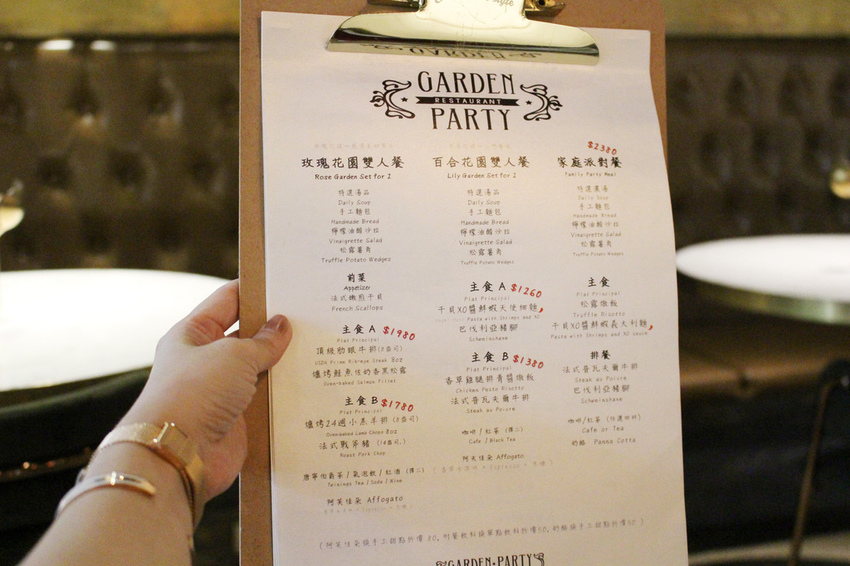 GARDEN
RESTAURANT
PARTY
玫瑰花園雙人餐
Rose Garden Set for 2
特選湯品
Daily Soup
手工麵包
Handmade Bread
檸檬油醋沙拉
Vinaigrette Salad
松露薯角
Truffle Potato Wedges
前菜
Appetizer
法式嫩煎干貝
French Scallops
主食 A $1980
Plat Principal
頂級肋眼牛排(8盎司)
USDA Prime Rib-eye Steak 8oz
爐烤鮭魚佐奶香黑松露
Oven-baked Salmon Fillet
主食 B $1780
Plat Principal
爐烤24週小羔羊排(8盎司)
Oven-baked Lamb Chops 8oz
法式戰斧豬(14盎司)
Roast Pork Chop
唐寧伯爵茶/氣泡飲/紅酒(擇二)
Twinings Tea / Soda / Wine
阿芙佳朵 Affogato
百合花園雙人餐
Lily Garden Set for 2
特選湯品
Daily Soup
手工麵包
Handmade Bread
檸檬油醋沙拉
Vinaigrette Salad
松露薯角
Truffle Potato Wedges
主食 A $1260
Plat Principal
干貝XO醬鮮蝦天使細麵
Pasta with Shrimps and XO
巴伐利亞豬腳
Schweinshaxe
主食 B $1380
Plat Principal
香草雞腿排青醬燉飯
Chicken Pesto Risotto
法式普瓦夫爾牛排
Steak au Poivre
咖啡/紅茶 (擇二)
Cafe / Black Tea
阿芙佳朵 Affogato
$2380
家庭派對餐
Family Party Meal
特選濃湯
Daily Soup
手工麵包
Handmade Bread
檸檬油醋沙拉
Vinaigrette Salad
松露薯角
Truffle Potato Wedges
主食
Plat Principal
松露燉飯
Truffle Risotto
干貝XO醬鮮蝦義大利麵
Pasta with Shrimps and XO sauce
排餐
法式普瓦夫爾牛排
Steak au Poivre
巴伐利亞豬腳
Schweinshaxe
咖啡/紅茶 (任選四杯)
Cafe or Tea
奶酪 Panna Cotta
GARDEN·PARTY